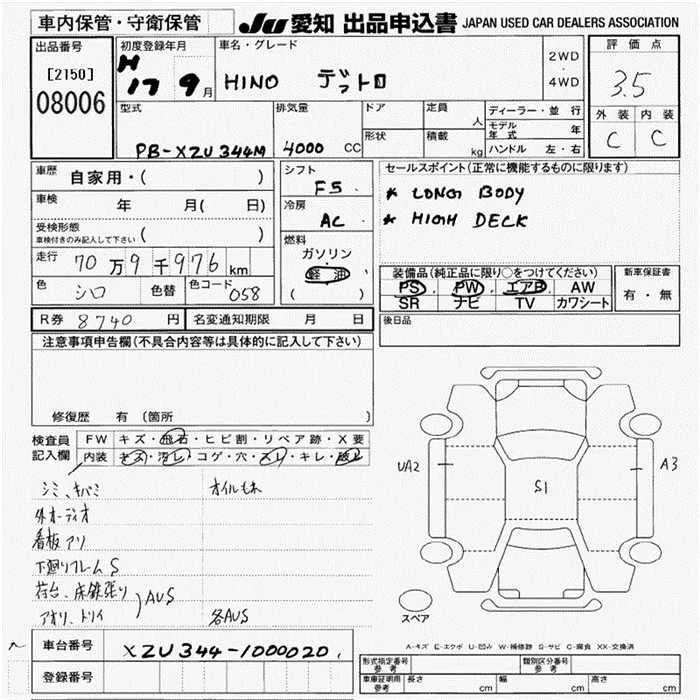 車内保管・守衛保管
JU 愛知 出品申込書 JAPAN USED CAR DEALERS ASSOCIATION
出品番号
[2150]
08006
初度登録年月
H
17 9月
車名・グレード
HINO デュトロ
2WD
・
4WD
評価点
3.5
外装 内装
C C
型式
PB-XZU344M
排気量
4000 CC
ドア
形状
定員
人
積載
kg
ディーラー・並行
モデル年式 年
ハンドル 左・右
車歴
自家用・( )
車検
年 月( 日)
受検形態
車検付きのみ記入して下さい ( )
走行
70万9千976km
色
シロ
色替
色コード
058
シフト
F5
冷房
AC
燃料
ガソリン
・
軽油
( )
セールスポイント(正常に機能するものに限ります)
* LONG BODY
* HIGH DECK
装備品(純正品に限り○をつけてください)
PS PW エアB AW
SR ナビ TV カワシート
新車保証書
有・無
R券 8740 円
名変通知期限 月 日
後日品
注意事項申告欄(不具合内容等は具体的に記入して下さい)
修復歴 有 (箇所 )
検査員
記入欄
FW キズ・飛石・ヒビ割・リペア跡・X要
内装 キズ・汚レ・コゲ・穴・スレ・キレ・破レ
シミ、キバミ オイルもれ
外オーディオ
看板アリ
下廻りフレームS
荷台、床鉄張り
アオリ、トリイ
AUS
各AUS
UA2
S1
A3
スペア
A-キズ E-エクボ U-凹み W-補修跡 S-サビ C-腐食 XX-交換済
車台番号 XZU344-1000020
登録番号
形式指定番号
参考
類別区分番号
参考
車庫証明用
参考
長さ cm 幅 cm 高さ cm